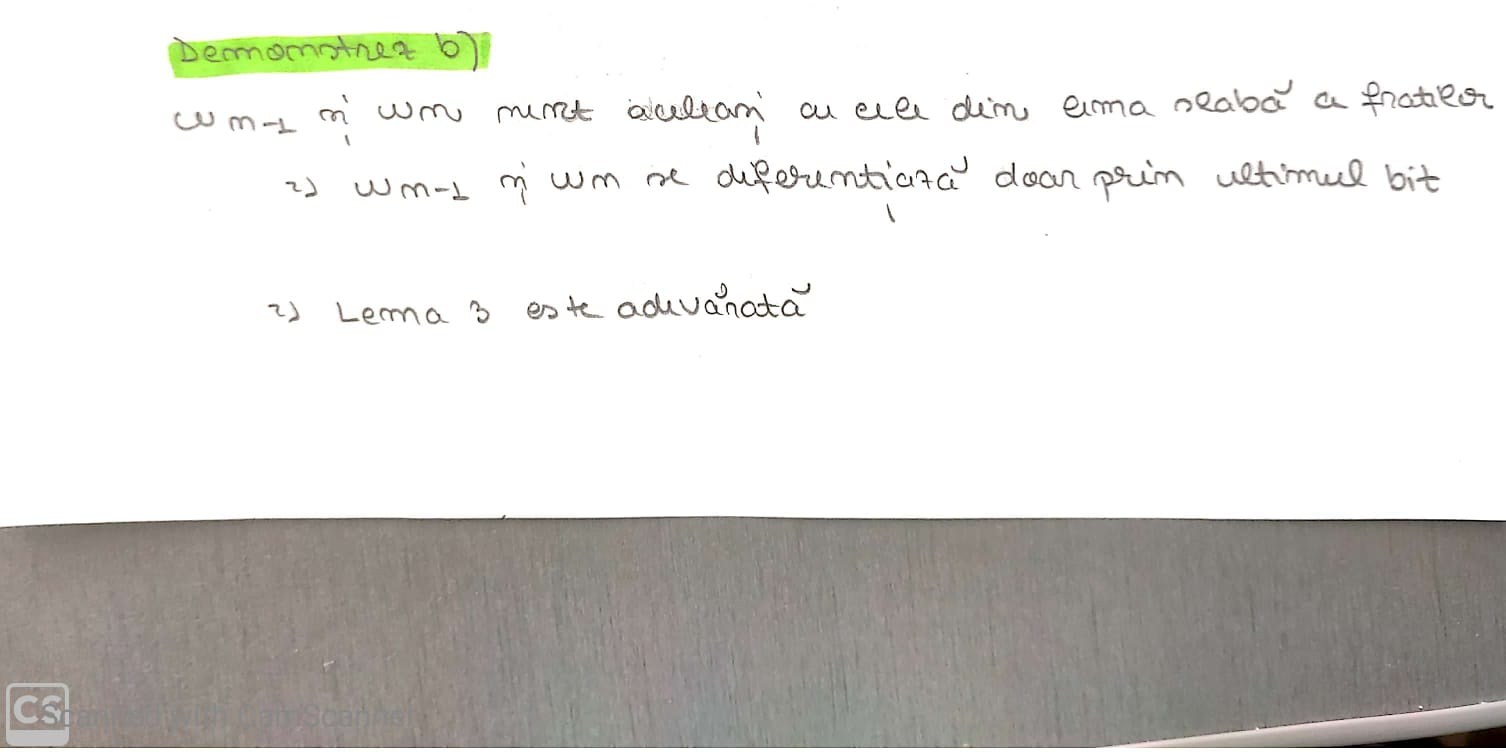 Demonstrez b)
wn-1 și wn sunt aceleași cu cele din lema slabă a fraților
=> wn-1 și wn se diferențiază doar prin ultimul bit
=> Lema 3 este adevărată
CS Scanned with CamScanner